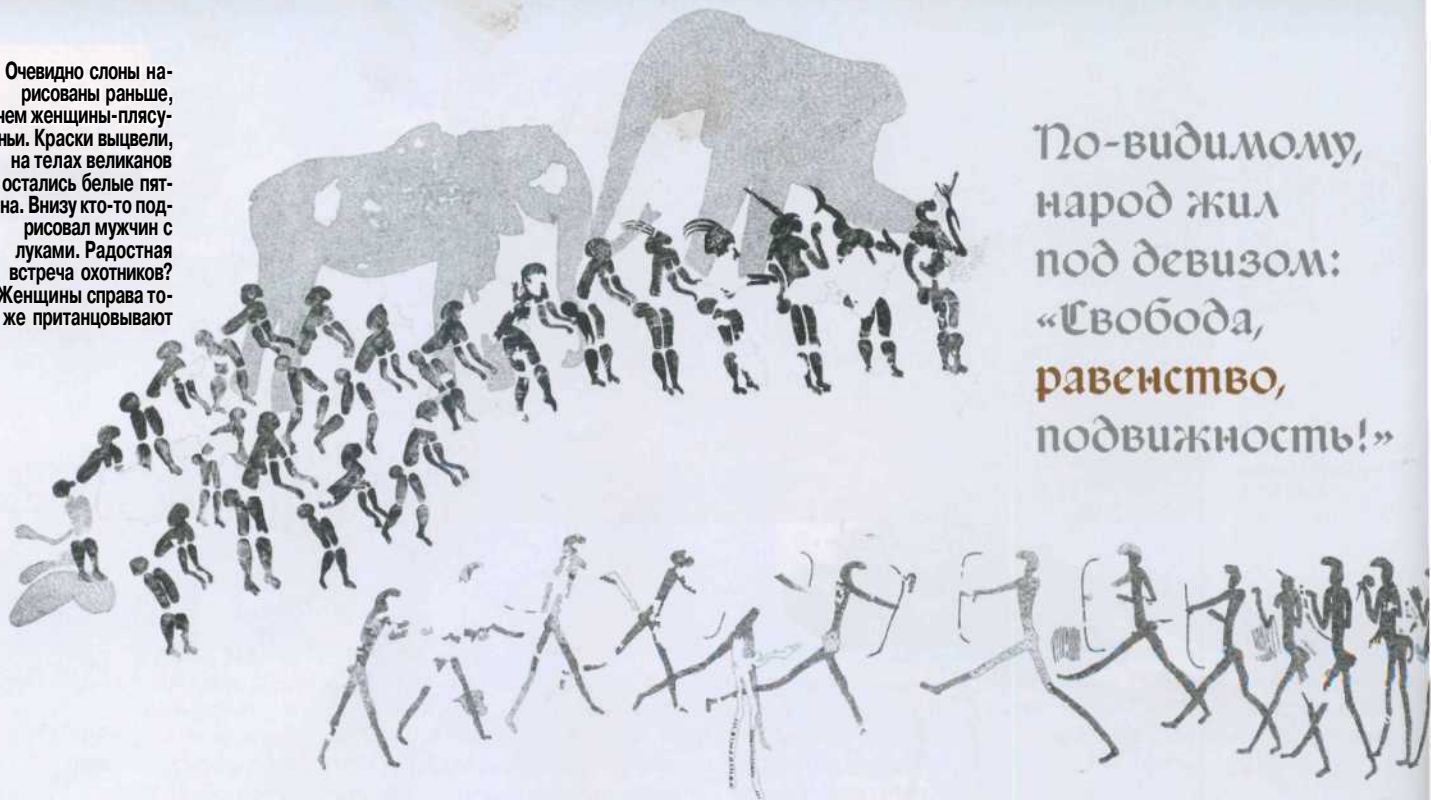 Очевидно слоны на-
рисованы раньше,
чем женщины-плясу-
ньи. Краски выцвели,
на телах великанов
остались белые пят-
на. Внизу кто-то под-
рисовал мужчин с
луками. Радостная
встреча охотников?
Женщины справа то-
же пританцовывают
По-видимому,
народ жил
под девизом:
«Свобода,
равенство,
подвижность!»